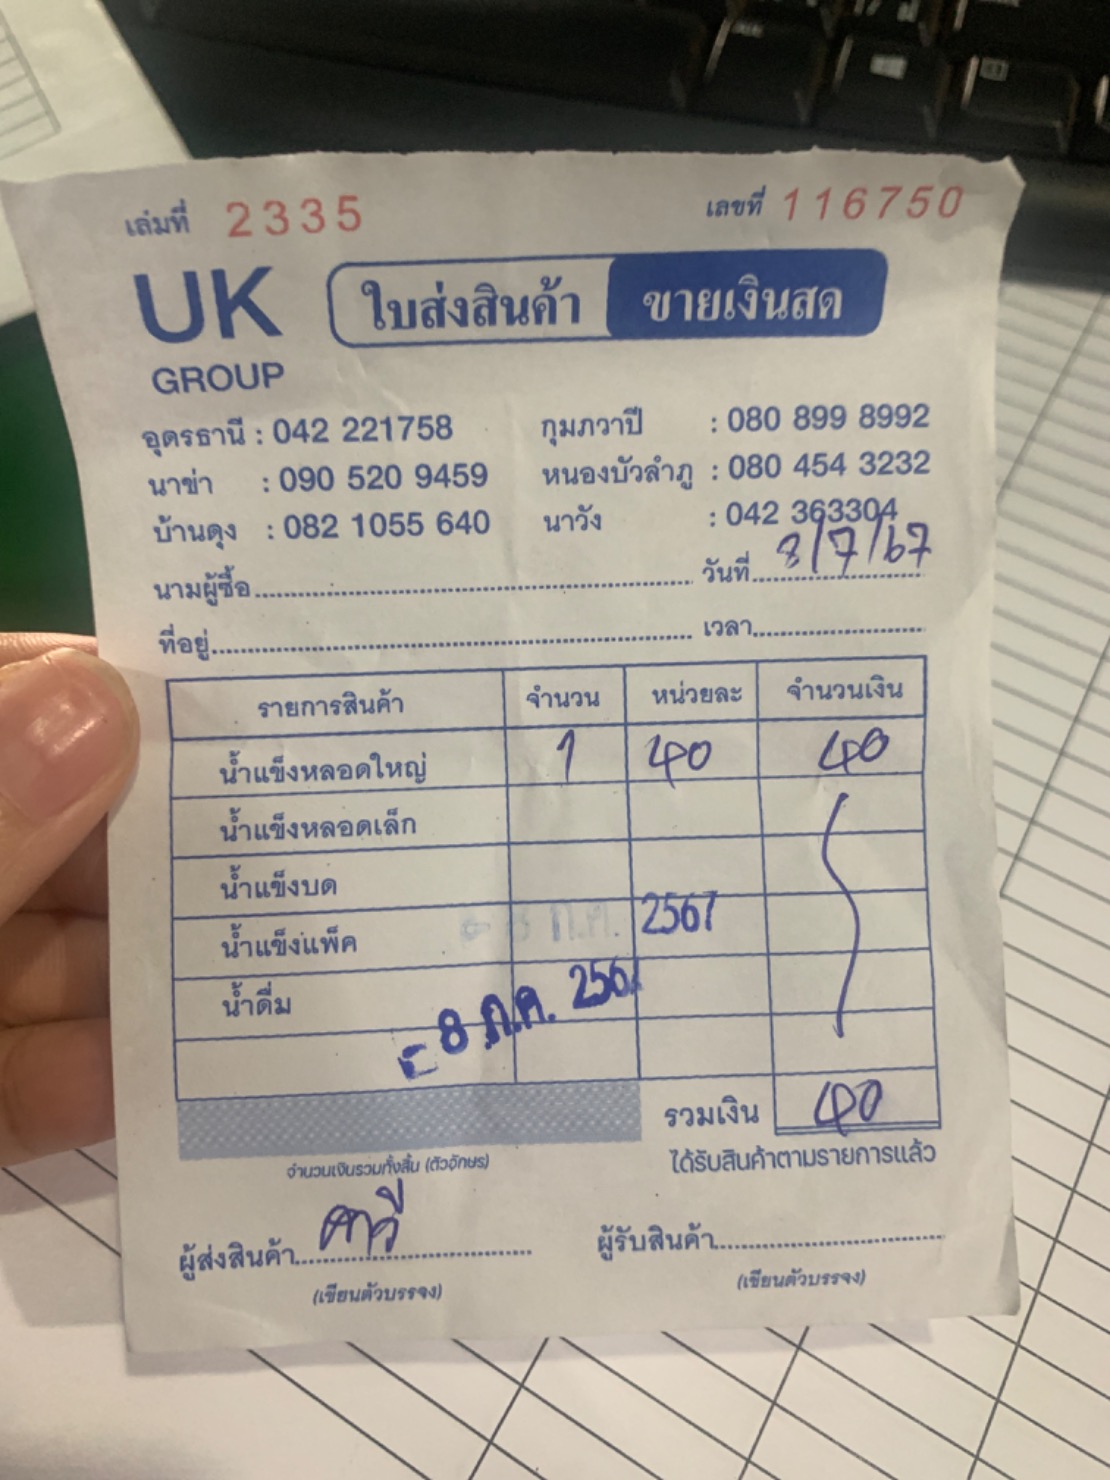 เล่มที่ 2335 เลขที่ 116750
UK GROUP
ใบส่งสินค้า ขายเงินสด
อุดรธานี : 042 221758 กุมภวาปี : 080 899 8992
นาข่า : 090 520 9459 หนองบัวลำภู : 080 454 3232
บ้านดุง : 082 1055 640 นาวัง : 042 363304
นามผู้ซื้อ วันที่ 8/7/67
ที่อยู่ เวลา
รายการสินค้า จำนวน หน่วยละ จำนวนเงิน
น้ำแข็งหลอดใหญ่ 1 40 40
น้ำแข็งหลอดเล็ก
น้ำแข็งบด
น้ำแข็งแพ็ค - 8 ก.ค. 2567
น้ำดื่ม
- 8 ก.ค. 2567
รวมเงิน 40
จำนวนเงินรวมทั้งสิ้น (ตัวอักษร) ได้รับสินค้าตามรายการแล้ว
ผู้ส่งสินค้า ผู้รับสินค้า
(เขียนตัวบรรจง) (เขียนตัวบรรจง)